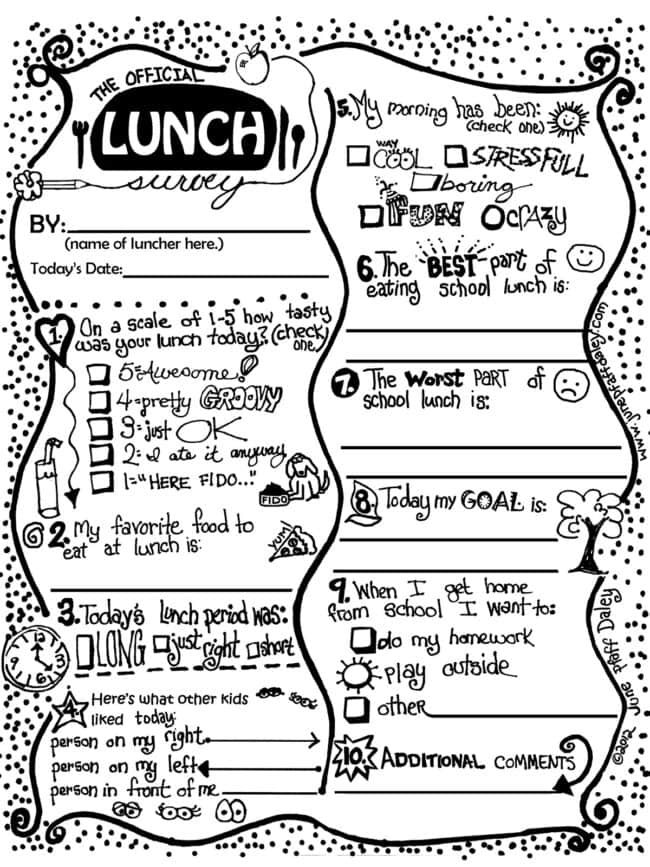 THE OFFICIAL
LUNCH
survey
BY:
(name of luncher here.)
Today's Date:
1. On a scale of 1-5 how tasty
was your lunch today? (check
one)
5=Awesome!
4=pretty GROOVY
3=just OK
2=I ate it anyway
1="HERE FIDO..."
FIDO
2. My favorite food to
eat at lunch is:
YUM!
3. Today's lunch period was:
LONG just right short
4. Here's what other kids
liked today:
person on my right
person on my left
person in front of me
5. My morning has been:
(check one)
WAY
COOL STRESSFULL
boring
FUN CRAZY
6. The "BEST" part of
eating school lunch is:
7. The WORST PART of
school lunch is:
8. Today my GOAL is:
9. When I get home
from school I want to:
do my homework
play outside
other
10. ADDITIONAL COMMENTS
www.junepfaffdaley.com
©2012 June Pfaff Daley